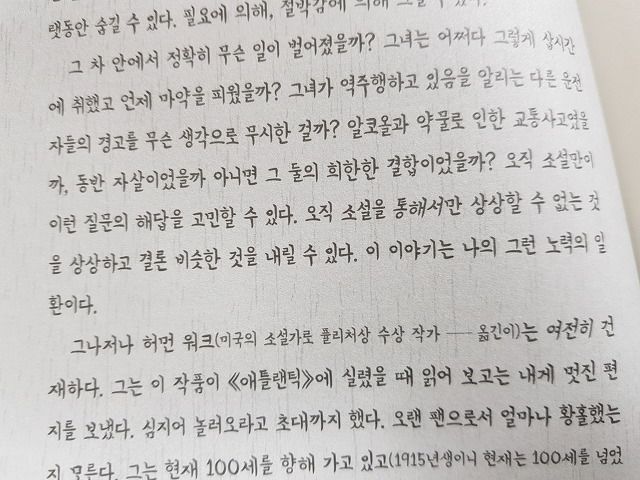 랫동안 숨길 수 있다. 필요에 의해, 절박감에 의해 그럴 수 있다.
그 차 안에서 정확히 무슨 일이 벌어졌을까? 그녀는 어쩌다 그렇게 삽시간
에 취했고 언제 마약을 피웠을까? 그녀가 역주행하고 있음을 알리는 다른 운전
자들의 경고를 무슨 생각으로 무시한 걸까? 알코올과 약물로 인한 교통사고였을
까, 동반 자살이었을까 아니면 그 둘의 희한한 결합이었을까? 오직 소설만이
이런 질문의 해답을 고민할 수 있다. 오직 소설을 통해서만 상상할 수 없는 것
을 상상하고 결론 비슷한 것을 내릴 수 있다. 이 이야기는 나의 그런 노력의 일
환이다.
그나저나 허먼 워크(미국의 소설가로 퓰리처상 수상 작가 ── 옮긴이)는 여전히 건
재하다. 그는 이 작품이 《애틀랜틱》에 실렸을 때 읽어 보고는 내게 멋진 편
지를 보냈다. 심지어 놀러오라고 초대까지 했다. 오랜 팬으로서 얼마나 황홀했는
지 모른다. 그는 현재 100세를 향해 가고 있고(1915년생이니 현재는 100세를 넘었